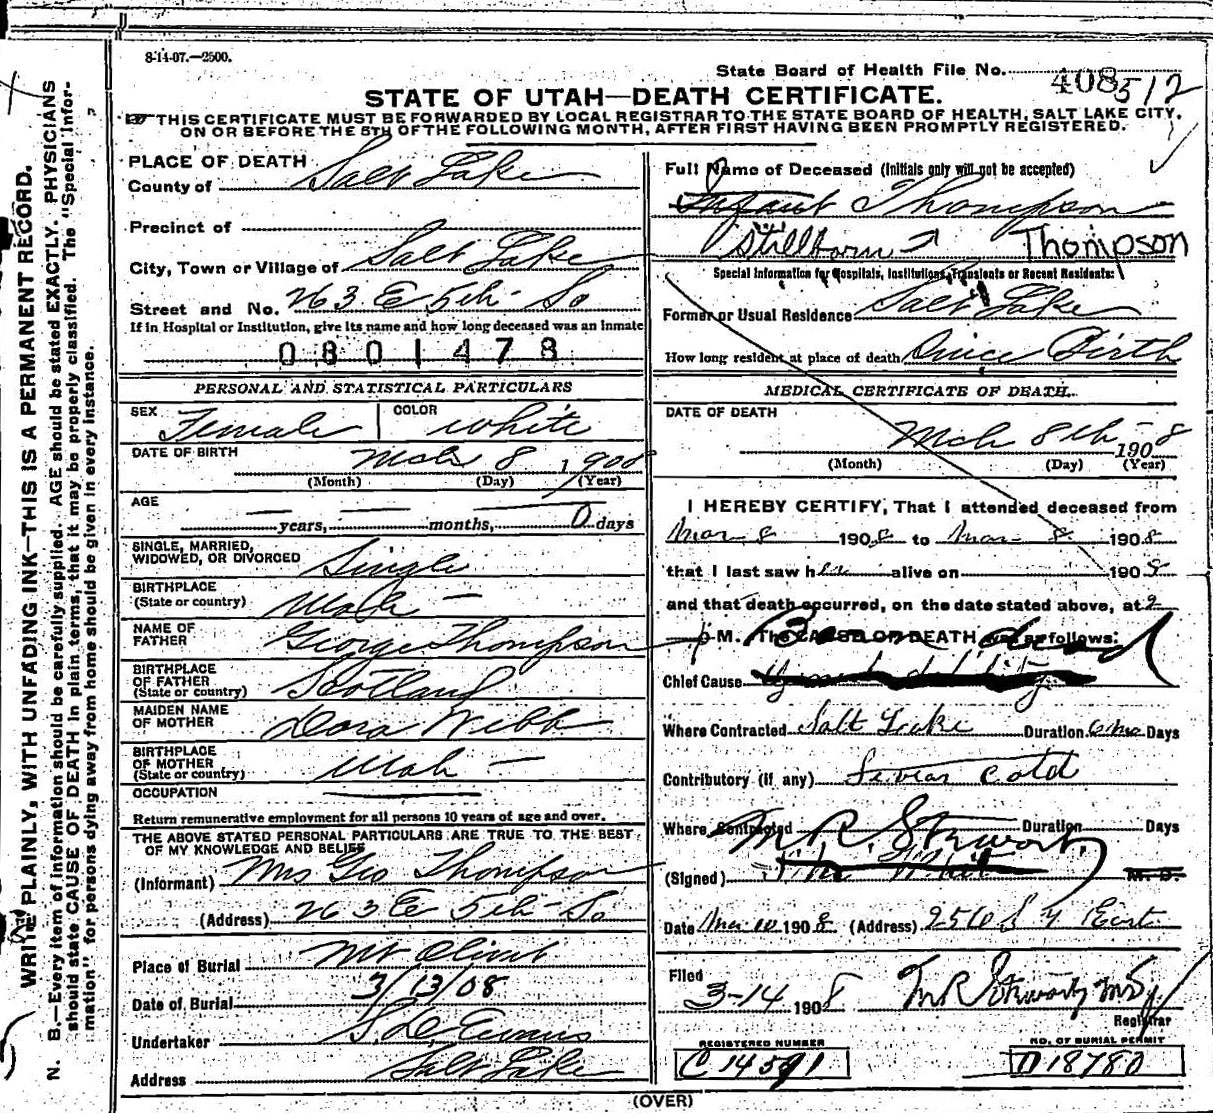 8-14-07.—2500.
State Board of Health File No. 408512
STATE OF UTAH—DEATH CERTIFICATE.
THIS CERTIFICATE MUST BE FORWARDED BY LOCAL REGISTRAR TO THE STATE BOARD OF HEALTH, SALT LAKE CITY,
ON OR BEFORE THE 5TH OF THE FOLLOWING MONTH, AFTER FIRST HAVING BEEN PROMPTLY REGISTERED.
WRITE PLAINLY, WITH UNFADING INK—THIS IS A PERMANENT RECORD.
N. B.—Every item of information should be carefully supplied. AGE should be stated EXACTLY. PHYSICIANS
should state CAUSE OF DEATH in plain terms, that it may be properly classified. The "Special Infor-
mation" for persons dying away from home should be given in every instance.
PLACE OF DEATH
County of Salt Lake
Precinct of
City, Town or Village of Salt Lake
Street and No. 263 E 5th So
If in Hospital or Institution, give its name and how long deceased was an inmate
0801478
PERSONAL AND STATISTICAL PARTICULARS
SEX Female COLOR White
DATE OF BIRTH Mch 8 1908
(Month) (Day) (Year)
AGE
— years, — months, 0 days
SINGLE, MARRIED,
WIDOWED, OR DIVORCED Single
BIRTHPLACE
(State or country) Utah —
NAME OF
FATHER George Thompson
BIRTHPLACE
OF FATHER
(State or country) Scotland
MAIDEN NAME
OF MOTHER Dora Webb
BIRTHPLACE
OF MOTHER
(State or country) Utah —
OCCUPATION
Return remunerative employment for all persons 10 years of age and over.
THE ABOVE STATED PERSONAL PARTICULARS ARE TRUE TO THE BEST
OF MY KNOWLEDGE AND BELIEF
(Informant) Mrs Geo Thompson
(Address) 263 E 5th So
Place of Burial Mt Olivet
Date of Burial 3/13/08
Undertaker S. D. Evans
Address Salt Lake
Full Name of Deceased (Initials only will not be accepted)
Infant Thompson
Stillborn Thompson
Special Information for Hospitals, Institutions, Transients or Recent Residents:
Former or Usual Residence Salt Lake
How long resident at place of death Since Birth
MEDICAL CERTIFICATE OF DEATH.
DATE OF DEATH
Mch 8th 1908
(Month) (Day) (Year)
I HEREBY CERTIFY, That I attended deceased from
Mar 8 1908 to Mar 8 1908
that I last saw her alive on 1908
and that death occurred, on the date stated above, at 2
p M. The CAUSE OF DEATH was as follows:
Born dead
Chief Cause
Where Contracted Salt Lake Duration 6 mo Days
Contributory (if any) Severe Cold
Where Contracted Duration Days
M. R. Stewart
(Signed) M. D.
Date Mar 10 1908 (Address) 256 S 4 East
Filed
3-14 1908 M R Stewart M D
Registrar
REGISTERED NUMBER
C 14591
NO. OF BURIAL PERMIT
D 18780
(OVER)